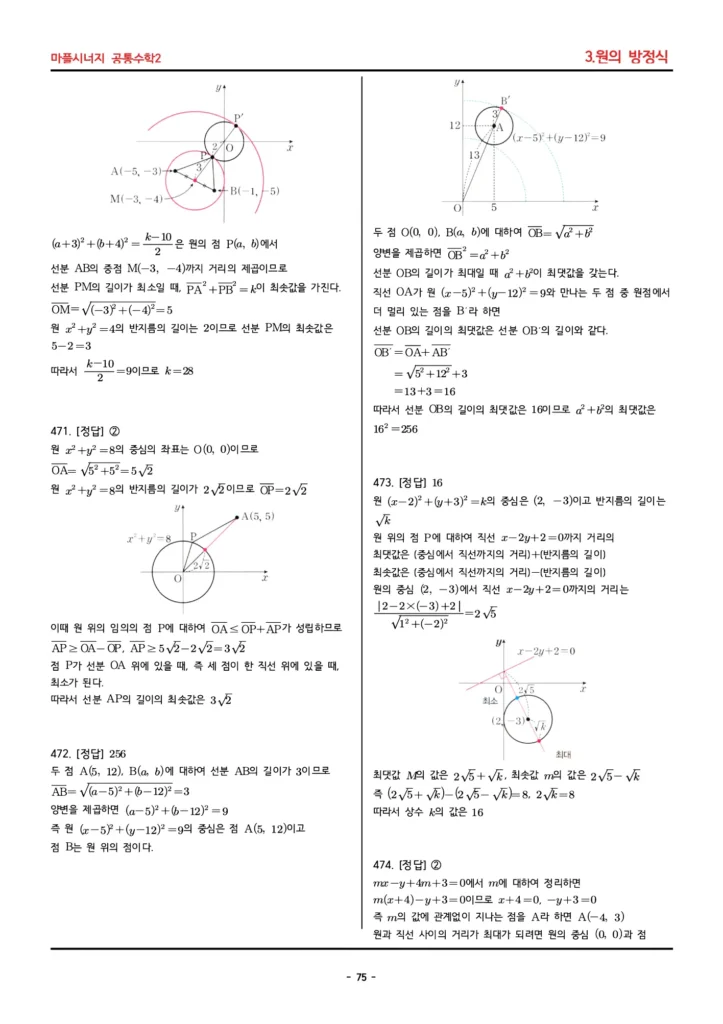 마플시너지 공통수학2
3.원의 방정식
y
P′
2
O
x
P
A(−5, −3)
3
B(−1, −5)
M(−3, −4)
(a+3)²+(b+4)² = (k−10)/2 은 원의 점 P(a, b)에서
선분 AB의 중점 M(−3, −4)까지 거리의 제곱이므로
선분 PM의 길이가 최소일 때, P̅A̅²+P̅B̅²=k이 최솟값을 가진다.
O̅M̅=√((−3)²+(−4)²)=5
원 x²+y²=4의 반지름의 길이는 2이므로 선분 PM의 최솟값은
5−2=3
따라서 (k−10)/2=9이므로 k=28
471. [정답] ②
원 x²+y²=8의 중심의 좌표는 O(0, 0)이므로
O̅A̅=√(5²+5²)=5√2
원 x²+y²=8의 반지름의 길이가 2√2이므로 O̅P̅=2√2
y
A(5, 5)
x²+y²=8
P
2√2
O
x
이때 원 위의 임의의 점 P에 대하여 O̅A̅≤O̅P̅+A̅P̅가 성립하므로
A̅P̅≥O̅A̅−O̅P̅, A̅P̅≥5√2−2√2=3√2
점 P가 선분 OA 위에 있을 때, 즉 세 점이 한 직선 위에 있을 때,
최소가 된다.
따라서 선분 AP의 길이의 최솟값은 3√2
472. [정답] 256
두 점 A(5, 12), B(a, b)에 대하여 선분 AB의 길이가 3이므로
A̅B̅=√((a−5)²+(b−12)²)=3
양변을 제곱하면 (a−5)²+(b−12)²=9
즉 원 (x−5)²+(y−12)²=9의 중심은 점 A(5, 12)이고
점 B는 원 위의 점이다.
y
B′
3
12
A
(x−5)²+(y−12)²=9
13
O
5
x
두 점 O(0, 0), B(a, b)에 대하여 O̅B̅=√(a²+b²)
양변을 제곱하면 O̅B̅²=a²+b²
선분 OB의 길이가 최대일 때 a²+b²이 최댓값을 갖는다.
직선 OA가 원 (x−5)²+(y−12)²=9와 만나는 두 점 중 원점에서
더 멀리 있는 점을 B′라 하면
선분 OB의 길이의 최댓값은 선분 OB′의 길이와 같다.
O̅B̅′=O̅A̅+A̅B̅′
=√(5²+12²)+3
=13+3=16
따라서 선분 OB의 길이의 최댓값은 16이므로 a²+b²의 최댓값은
16²=256
473. [정답] 16
원 (x−2)²+(y+3)²=k의 중심은 (2, −3)이고 반지름의 길이는
√k
원 위의 점 P에 대하여 직선 x−2y+2=0까지 거리의
최댓값은 (중심에서 직선까지의 거리)+(반지름의 길이)
최솟값은 (중심에서 직선까지의 거리)−(반지름의 길이)
원의 중심 (2, −3)에서 직선 x−2y+2=0까지의 거리는
|2−2×(−3)+2|/√(1²+(−2)²)=2√5
y
x−2y+2=0
O
2√5
x
최소
(2, −3)
√k
최대
최댓값 M의 값은 2√5+√k, 최솟값 m의 값은 2√5−√k
즉 (2√5+√k)−(2√5−√k)=8, 2√k=8
따라서 상수 k의 값은 16
474. [정답] ②
mx−y+4m+3=0에서 m에 대하여 정리하면
m(x+4)−y+3=0이므로 x+4=0, −y+3=0
즉 m의 값에 관계없이 지나는 점을 A라 하면 A(−4, 3)
원과 직선 사이의 거리가 최대가 되려면 원의 중심 (0, 0)과 점
- 75 -